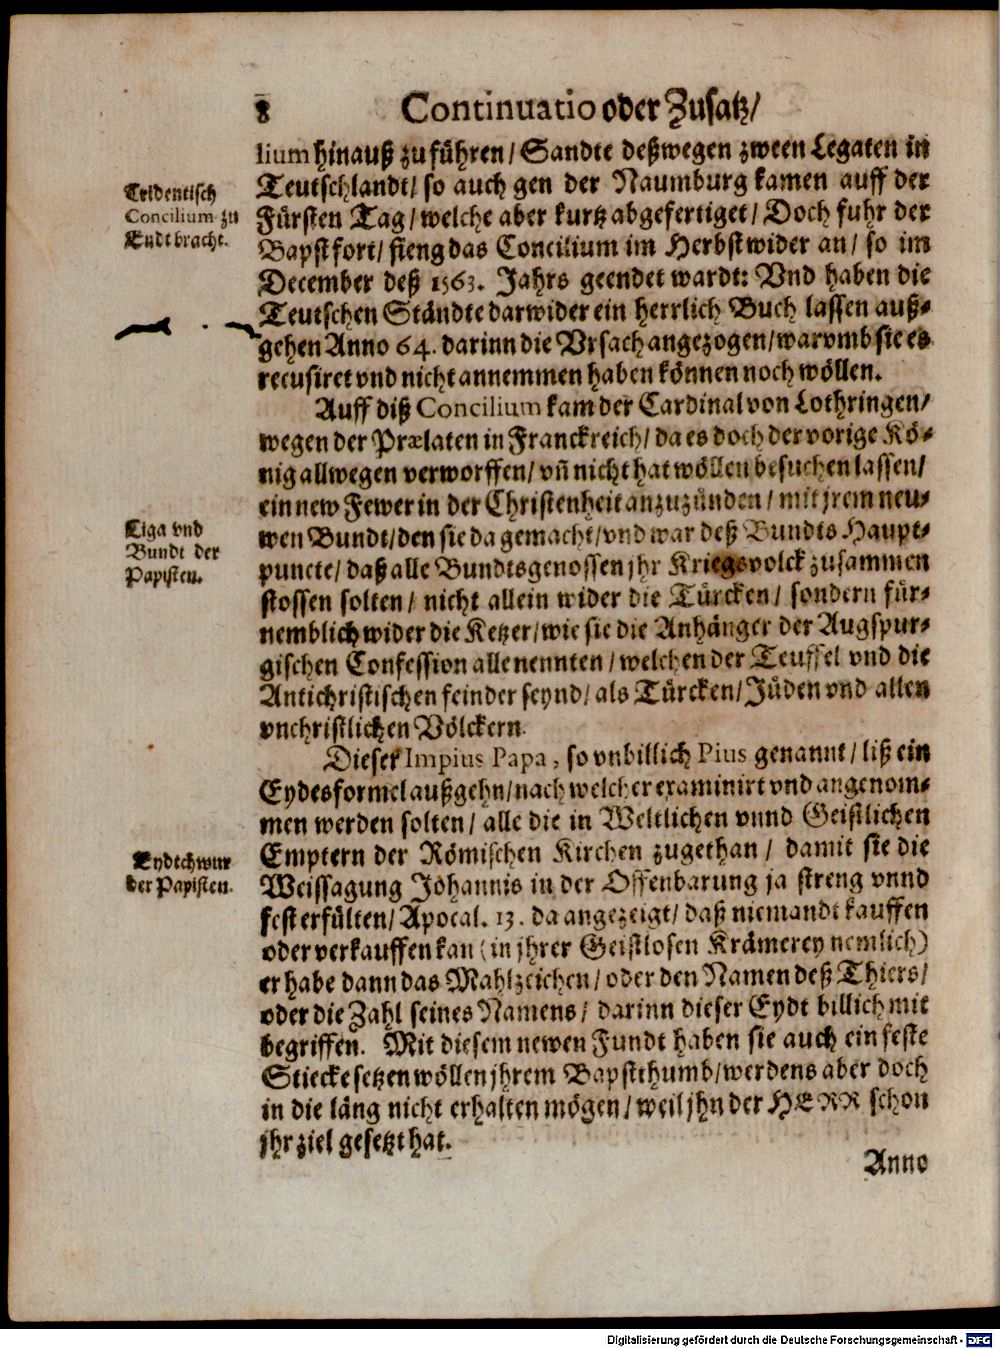 8 Continuatio oder Zusatz/
lium hinauß zu führen/ Sandte deßwegen zween Legaten in
Teutschlandt/ so auch gen der Naumburg kamen auff der
Fürsten Tag/ welche aber kurtz abgefertiget/ Doch fuhr der
Bapst fort/ fieng das Concilium im Herbst wider an/ so im
December deß 1563. Jahrs geendet wardt: Vnd haben die
Teutschen Ständte darwider ein herrlich Buch lassen auß-
gehen Anno 64. darinn die Vrsach angezogen/ warvmb sie es
recusiret vnd nicht annemmen haben können noch wöllen.
Tridentisch
Concilium zu
Endt bracht.
Auff diß Concilium kam der Cardinal von Lothringen/
wegen der Prælaten in Franckreich/ da es doch der vorige Kö-
nig allwegen verworffen/ vñ nicht hat wöllen besuchen lassen/
ein new Fewer in der Christenheit anzuzünden/ mit jrem neu-
wen Bundt/ den sie da gemacht/ vnd war deß Bundts Haupt-
puncte/ daß alle Bundtsgenossen jhr Kriegsvolck zusammen
stossen solten/ nicht allein wider die Türcken/ sondern für-
nemblich wider die Ketzer/ wie sie die Anhänger der Augspur-
gischen Confession alle nennten/ welchen der Teuffel vnd die
Antichristischen feinder seynd/ als Türcken/ Jüden vnd allen
vnchristlichen Völckern.
Liga vnd
Bundt der
Papisten.
Dieser Impius Papa, so vnbillich Pius genannt/ liß ein
Eydesformel außgehn/ nach welcher examinirt vnd angenom-
men werden solten/ alle die in Weltlichen vnnd Geistlichen
Emptern der Römischen Kirchen zugethan/ damit sie die
Weissagung Johannis in der Offenbarung ja streng vnnd
fest erfülten/ Apocal. 13. da angezeigt/ daß niemandt kauffen
oder verkauffen kan (in jhrer Geistlosen Krämerey nemlich)
er habe dann das Mahlzeichen/ oder den Namen deß Thiers/
oder die Zahl seines Namens/ darinn dieser Eydt billich mit
begriffen. Mit diesem newen Fundt haben sie auch ein feste
Stiecke setzen wöllen jhrem Bapstthumb/ werdens aber doch
in die läng nicht erhalten mögen/ weil jhn der HERR schon
jhr ziel gesetzt hat.
Eydtschwur
der Papisten.
Anno
Digitalisierung gefördert durch die Deutsche Forschungsgemeinschaft - DFG